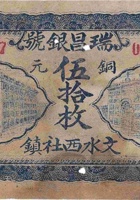 瑞昌銀號
銅元
伍拾枚
文水西社鎮